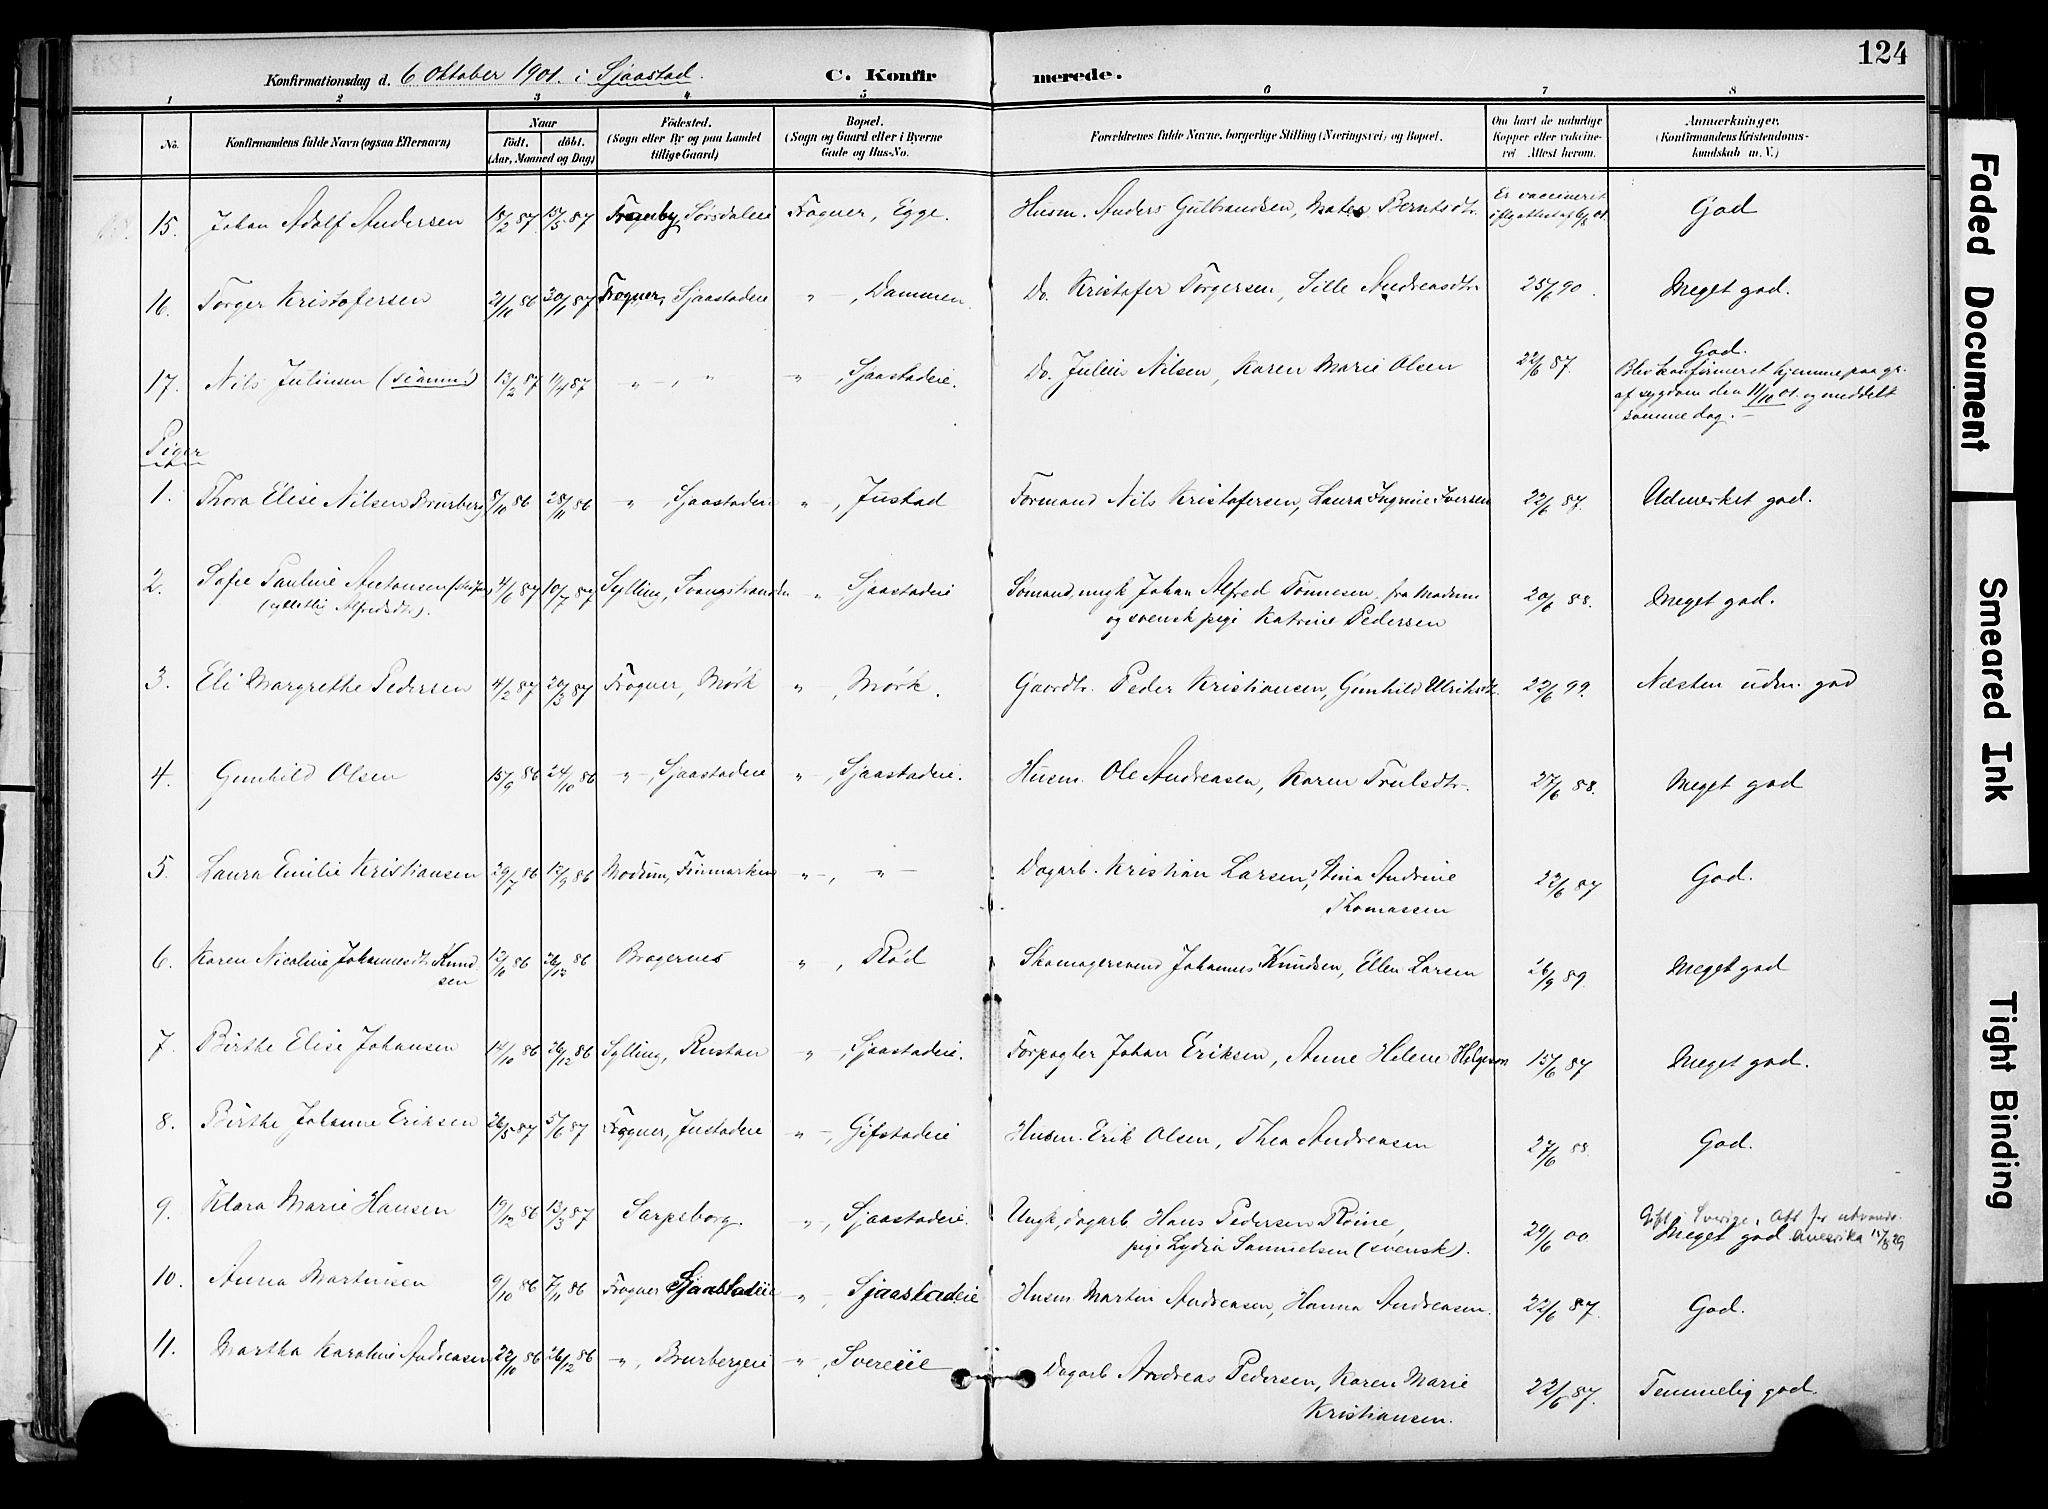 124
Konfirmationsdag d. 6 Oktober 1901. i Sjaastad. C. Konfirmerede.
1 2 3 4 5 6 7 8
No. Konfirmandens fulde Navn (ogsaa Efternavn) Naar födt. döbt. (Aar, Maaned og Dag) Födested. (Sogn eller By og paa Landet tillige Gaard) Bopæl. (Sogn og Gaard eller i Byerne Gade og Hus-No. Forældrenes fulde Navne, borgerlige Stilling (Næringsvei) og Bopæl. Om havt de naturlige Kopper eller vaccineret. Attest herom. Anmærkninger. (Konfirmandens Kristendomskundskab m. V.)
15. Johan Adolf Andersen 15/3 87 Sørsdaleie Frogner, Egge. Husm. Anders Gulbrandsen, Berntsdtr. Er vaccineret God
16. Torger Kristofersen 21/11 86 30/1 87 Frogner, Sjaastadeie " –, Dammen Do. Kristofer Torgersen, Sille Andreasdtr. 25/6 90. Meget god.
17. Nils Juliussen 13/2 87 11/4 87 " –, " " –, Sjaastadeie. Do. Julius Nilsen, Karen Marie Olsen 22/6 87. God.
Blev konfirmeret hjemme paa gr.
af sygdom den 11/10 01. og meddelt
samme dag. –
Piger
1. Thora Elise Nilsen Brurberg 8/10 86 28/11 86 " –, Sjaastadeie " –, Justad Formand Nils Kristofersen, Laura Ingrine Iversen 22/6 87. Udmerket god.
2. Sofie Pauline Antonsen 4/6 87 10/7 87 Sylling, Svangstranden " –, Sjaastadeie Sømand, ungk. Johan Alfred Tønnesen, fra Modum 20/6 88. Meget god.
Alfredsdtr). og svensk pige Katrine Pedersen
3. Eli Margrethe Pedersen 4/2 87 20/3 87 Frogner, Mørk " –, Mørk. Gaardbr. Peder Kristiansen, Gunhild Ulriksdtr. 22/6 99. Næsten udm. god
4. Gunhild Olsen 15/9 86 24/10 86 " –, Sjaastadeie " –, Sjaastadeie. Husm. Ole Andreasen, Karen Trulsdtr. 27/6 88. Meget god
5. Laura Emilie Kristiansen 29/7 86 12/9 86 Modum, Finmarken " –, " – Dagarb. Kristian Larsen, Stina Andrine 22/6 87 God.
Thomassen
6. Karen Nicoline Johannesdtr. Knudsen 12/11 86 26/12 86 Bragernes " , Rød Skomagersvend Johannes Knudsen, Ellen Larsen 26/9 89. Meget god
7. Birthe Elise Johansen 14/10 86 26/12 86 Sylling, Rustan " –, Sjaastadeie. Forpagter Johan Eriksen, Anne Helene Helgesen 15/6 87 Meget god.
8. Birthe Johanne Eriksen 26/5 87 5/6 87 Frogner, Justadeie " –, Gifstadeie Husm. Erik Olsen, Thea Andreasen 27/6 88. God.
9. Klara Marie Hansen 19/12 86 13/3 87 Sarpsborg. " –, Sjaastadeie. Ungk., dagarb. Hans Pedersen Roine, 29/6 00. Meget god
pige Lydia Samuelsen (svensk). Gift i Sverige. Att. for utvandr. Amerika
10. Anna Martinsen 9/10 86 7/11 86 Frogner Sjaastadeie " –, Sjaastadeie Husm. Martin Andreasen, Hanna Andreasen. 22/6 87. God.
11. Martha Karoline Andreasen 22/10 86 26/12 86 " –, Brurbergeie " –, Svereiie Dagarb Andreas Pedersen, Karen Marie 22/6 87. Temmelig god.
Kristiansen.
Faded Document
Smeared Ink
Tight Binding